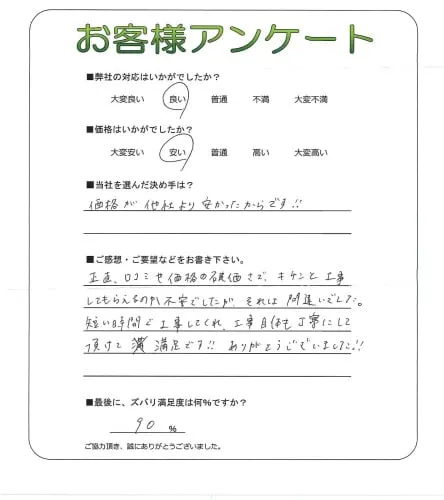 お客様アンケート
■弊社の対応はいかがでしたか？
大変良い 良い 普通 不満 大変不満
■価格はいかがでしたか？
大変安い 安い 普通 高い 大変高い
■当社を選んだ決め手は？
価格が他社より安かったからです!!
■ご感想・ご要望などをお書き下さい。
正直、口コミや価格の安価さで、キチンと工事
してもらえるのか不安でしたが、それは間違いでした。
短い時間で工事してくれ、工事自体も丁寧にして
頂けて満足です!! ありがとうございました!!
■最後に、ズバリ満足度は何%ですか？
90 %
ご協力頂き、誠にありがとうございました。